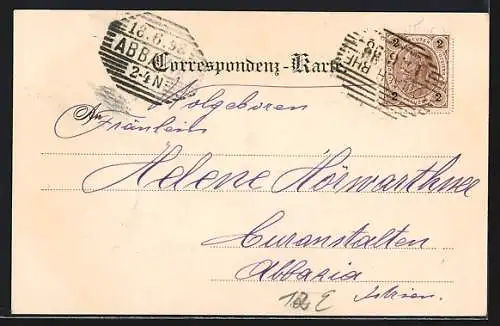 18.6.98
ABBA
2-4N
2 2
2 2
Correspondenz-Karte
Wolgeboren
An Fräulein
Helene Hörwarthner
Curanstalten
Abbazia
Istrien.
12 E